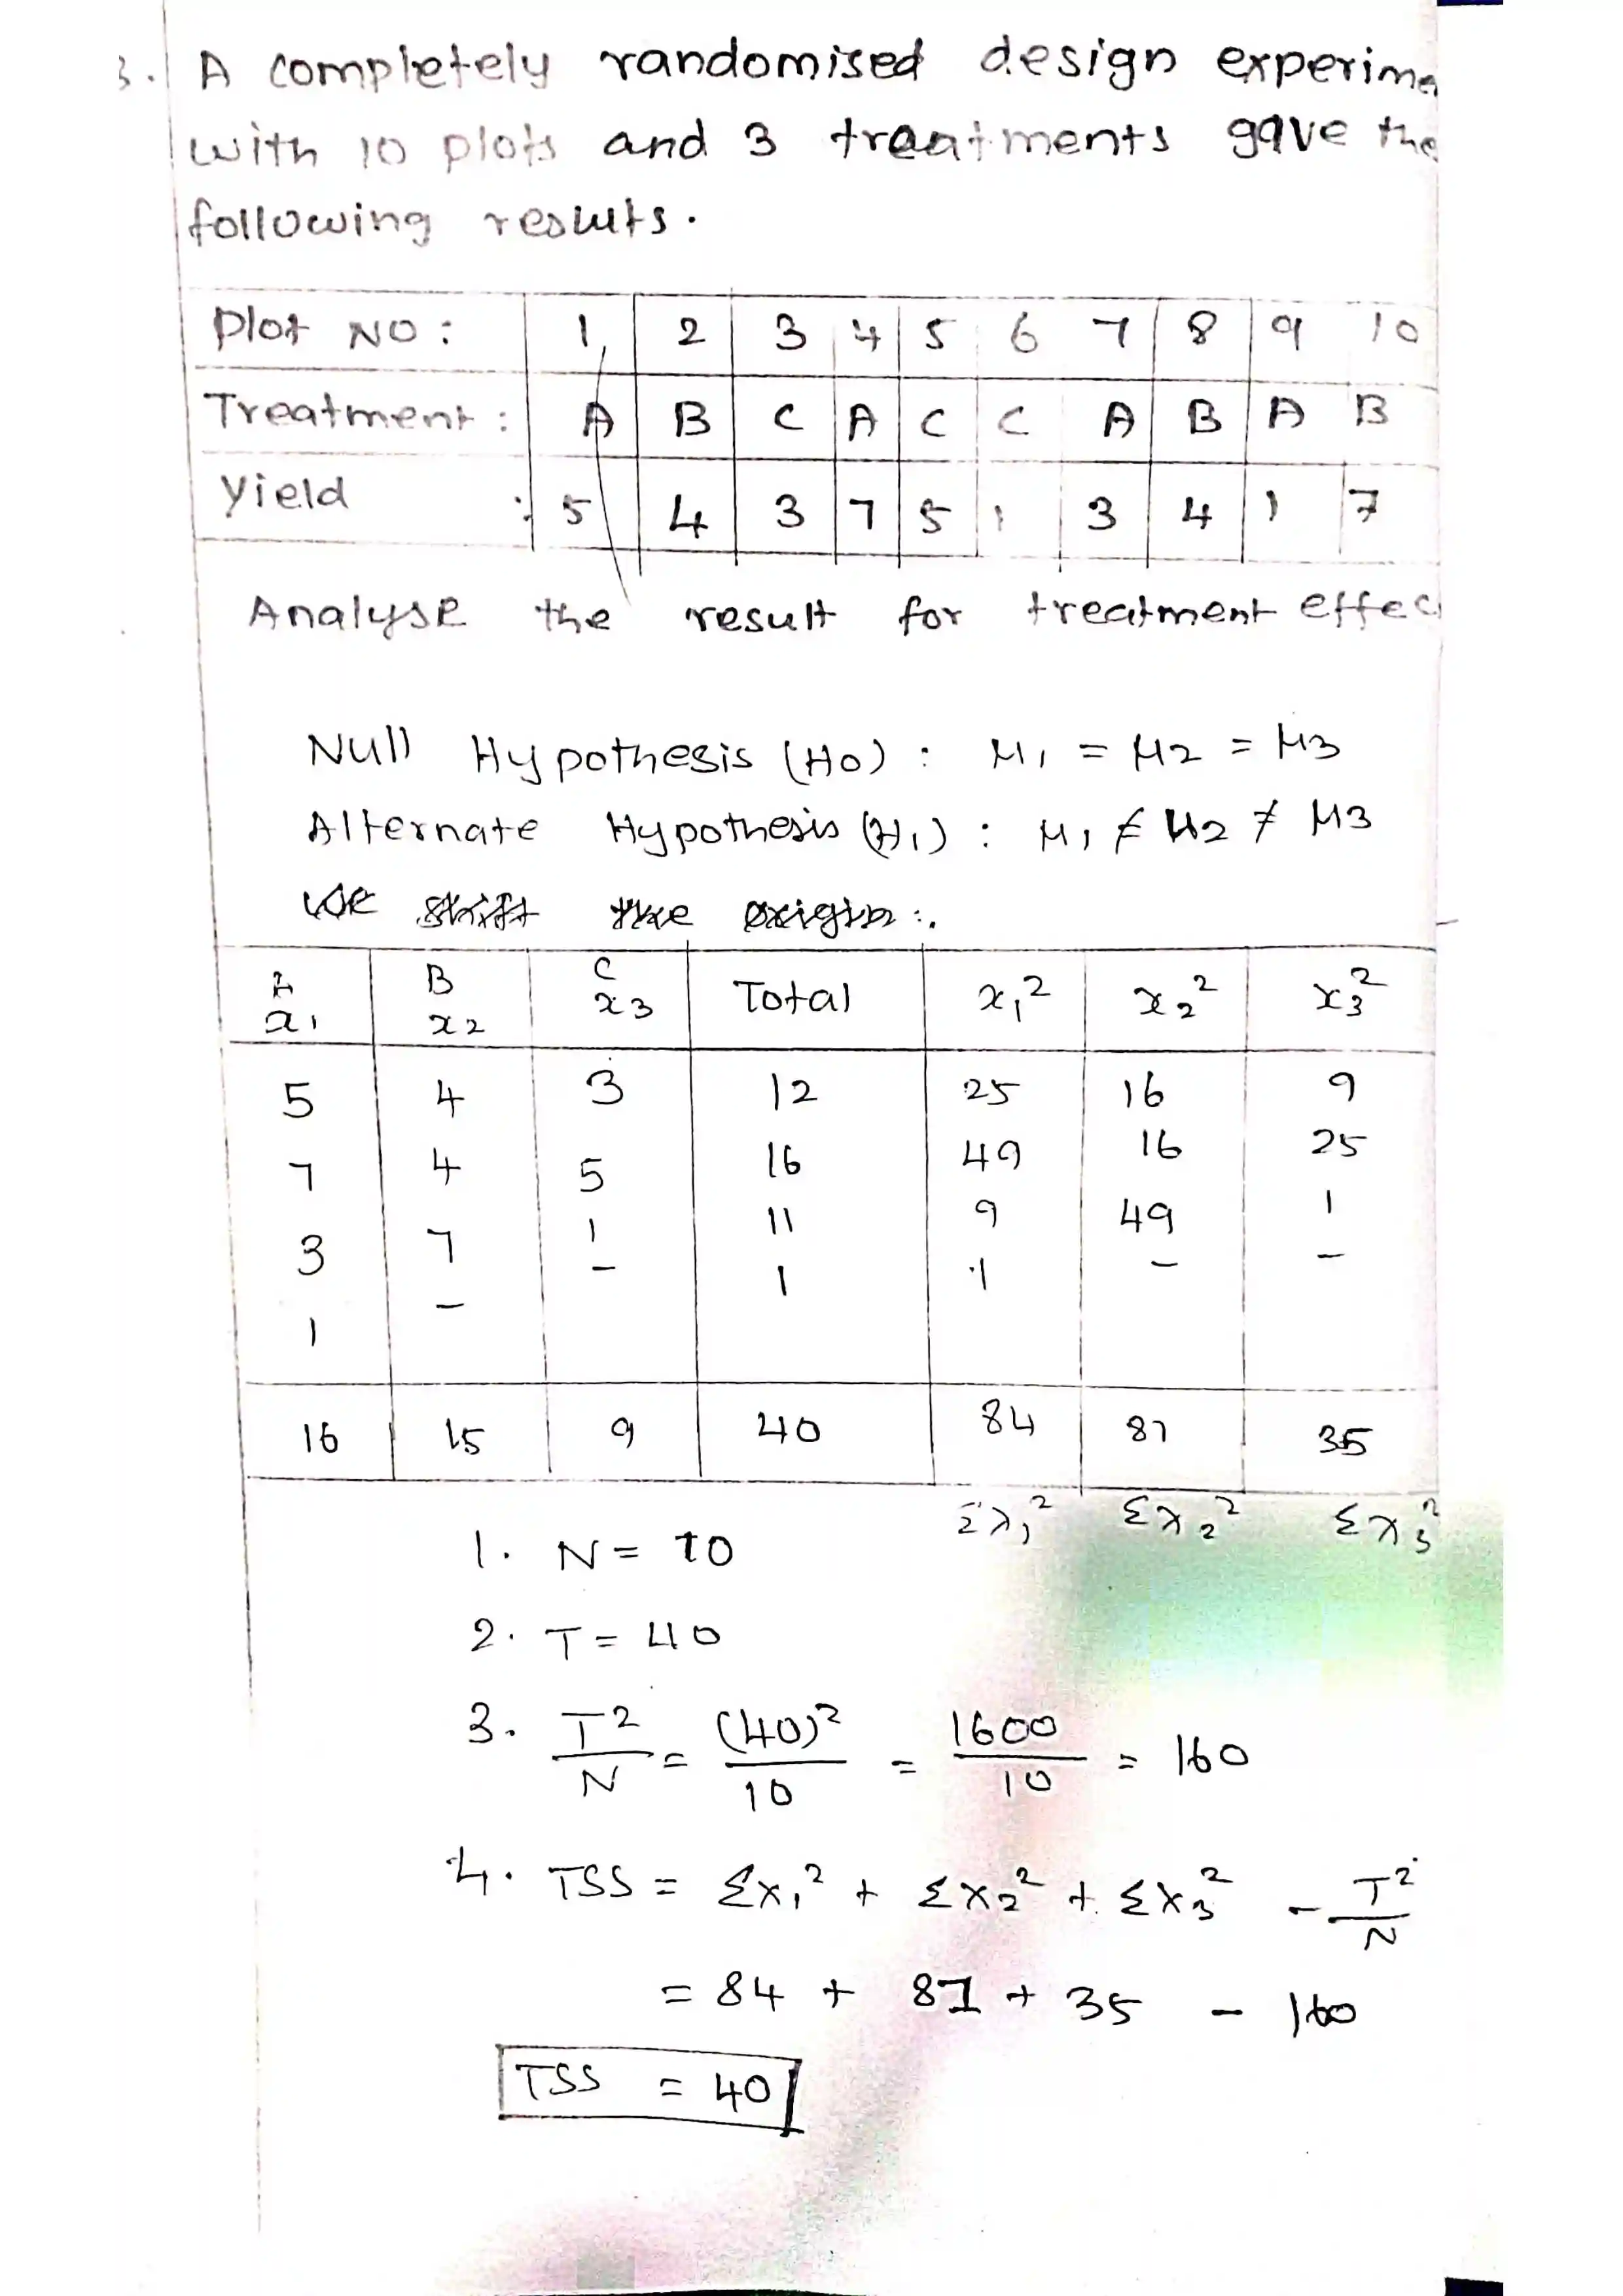 3. A completely randomised design experime
with 10 plots and 3 treatments gave the
following results.
Plot NO : 1 2 3 4 5 6 7 8 9 10
Treatment : A B C A C C A B A B
Yield : 5 4 3 7 5 1 3 4 1 7
Analyse the result for treatment effec
Null Hypothesis (H0) : μ1 = μ2 = μ3
Alternate Hypothesis (H1) : μ1 ≠ μ2 ≠ μ3
We shift the origin :.
A B C Total x1² x2² x3²
x1 x2 x3
5 4 3 12 25 16 9
7 4 5 16 49 16 25
3 7 1 11 9 49 1
1 - - 1 1 - -
16 15 9 40 84 81 35
Σx1² Σx2² Σx3²
1. N = 10
2. T = 40
3. T²/N = (40)²/10 = 1600/10 = 160
4. TSS = Σx1² + Σx2² + Σx3² - T²/N
= 84 + 81 + 35 - 160
TSS = 40